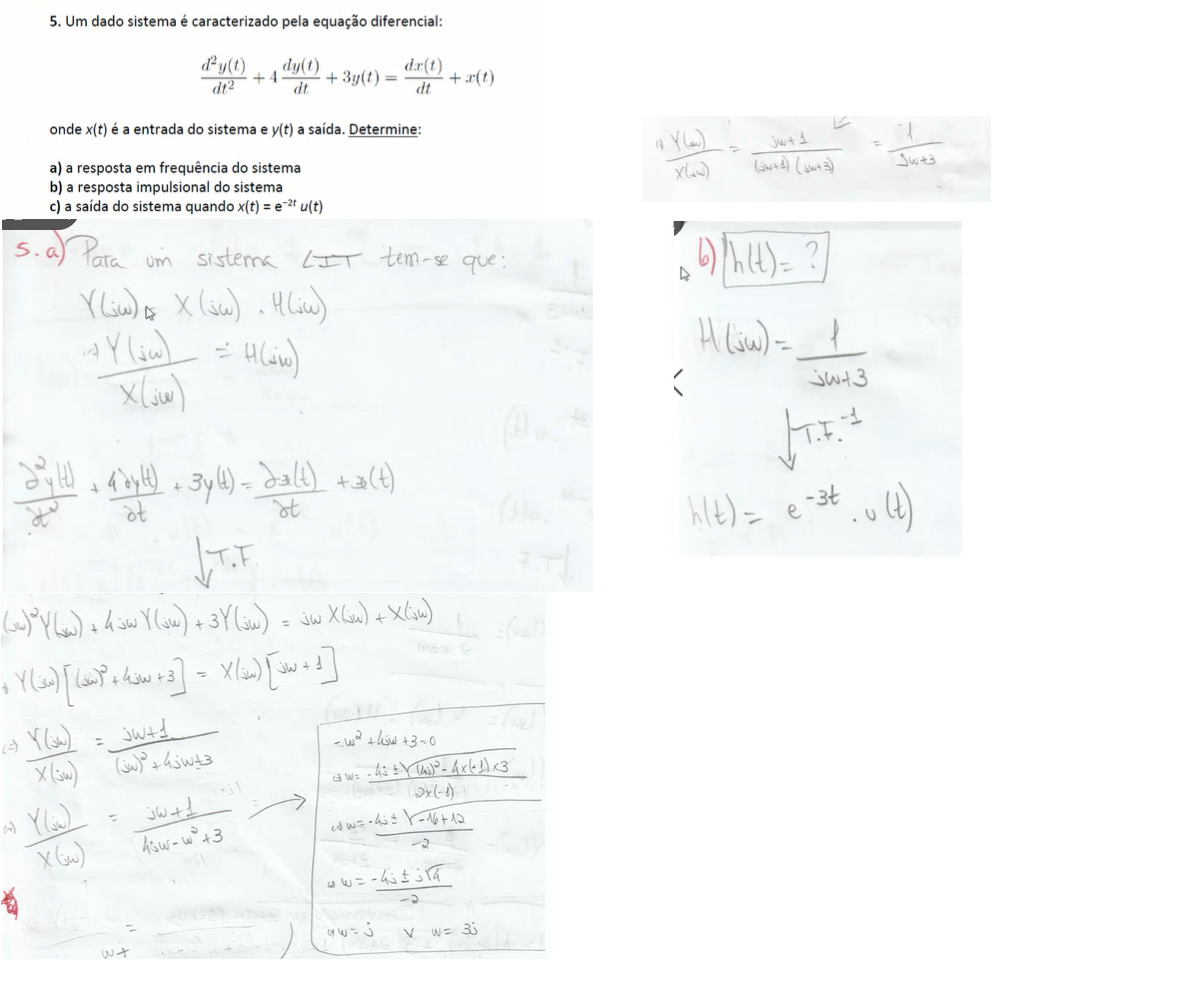 5. Um dado sistema é caracterizado pela equação diferencial:
d²y(t)/dt² + 4 dy(t)/dt + 3y(t) = dx(t)/dt + x(t)
onde x(t) é a entrada do sistema e y(t) a saída. Determine:
a) a resposta em frequência do sistema
b) a resposta impulsional do sistema
c) a saída do sistema quando x(t) = e⁻²ᵗ u(t)
5. a) Para um sistema LIT tem-se que:
Y(jω) = X(jω) . H(jω)
(=) Y(jω)/X(jω) = H(jω)
∂²y(t)/∂t² + 4∂y(t)/∂t + 3y(t) = ∂x(t)/∂t + x(t)
↓ T.F.
(jω)² Y(jω) + 4jω Y(jω) + 3Y(jω) = jω X(jω) + X(jω)
Y(jω) [(jω)² + 4jω + 3] = X(jω) [jω + 1]
(=) Y(jω)/X(jω) = (jω+1)/((jω)² + 4jω+3)
(=) Y(jω)/X(jω) = (jω+1)/(4jω-ω²+3) →
-ω² + 4jω + 3 = 0
(=) ω = (-4j ± √((4j)² - 4×(-1)×3))/(2×(-1))
(=) ω = (-4j ± √(-16+12))/(-2)
(=) ω = (-4j ± j√4)/(-2)
(=) ω = j ∨ ω = 3j
=
(=) Y(jω)/X(jω) = (jω+1)/((jω+1) (jω+3)) = 1/(jω+3)
b) h(t) = ?
H(jω) = 1/(jω+3)
↓ T.F.⁻¹
h(t) = e⁻³ᵗ . u(t)